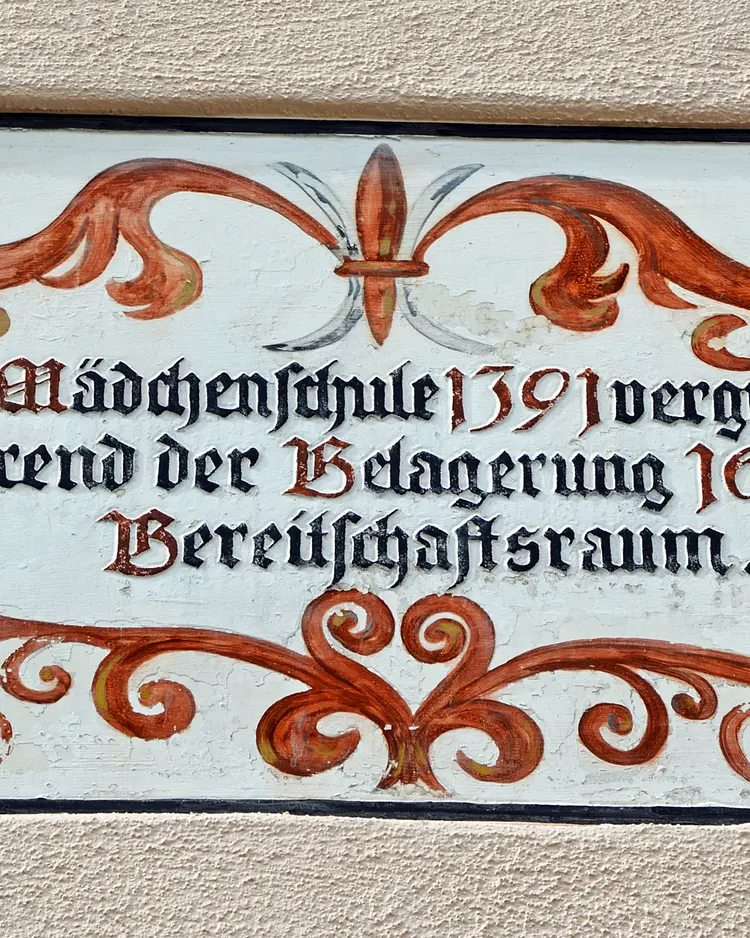 Mädchenschule 1391 verg
rend der Belagerung 16
Bereitschaftsraum.